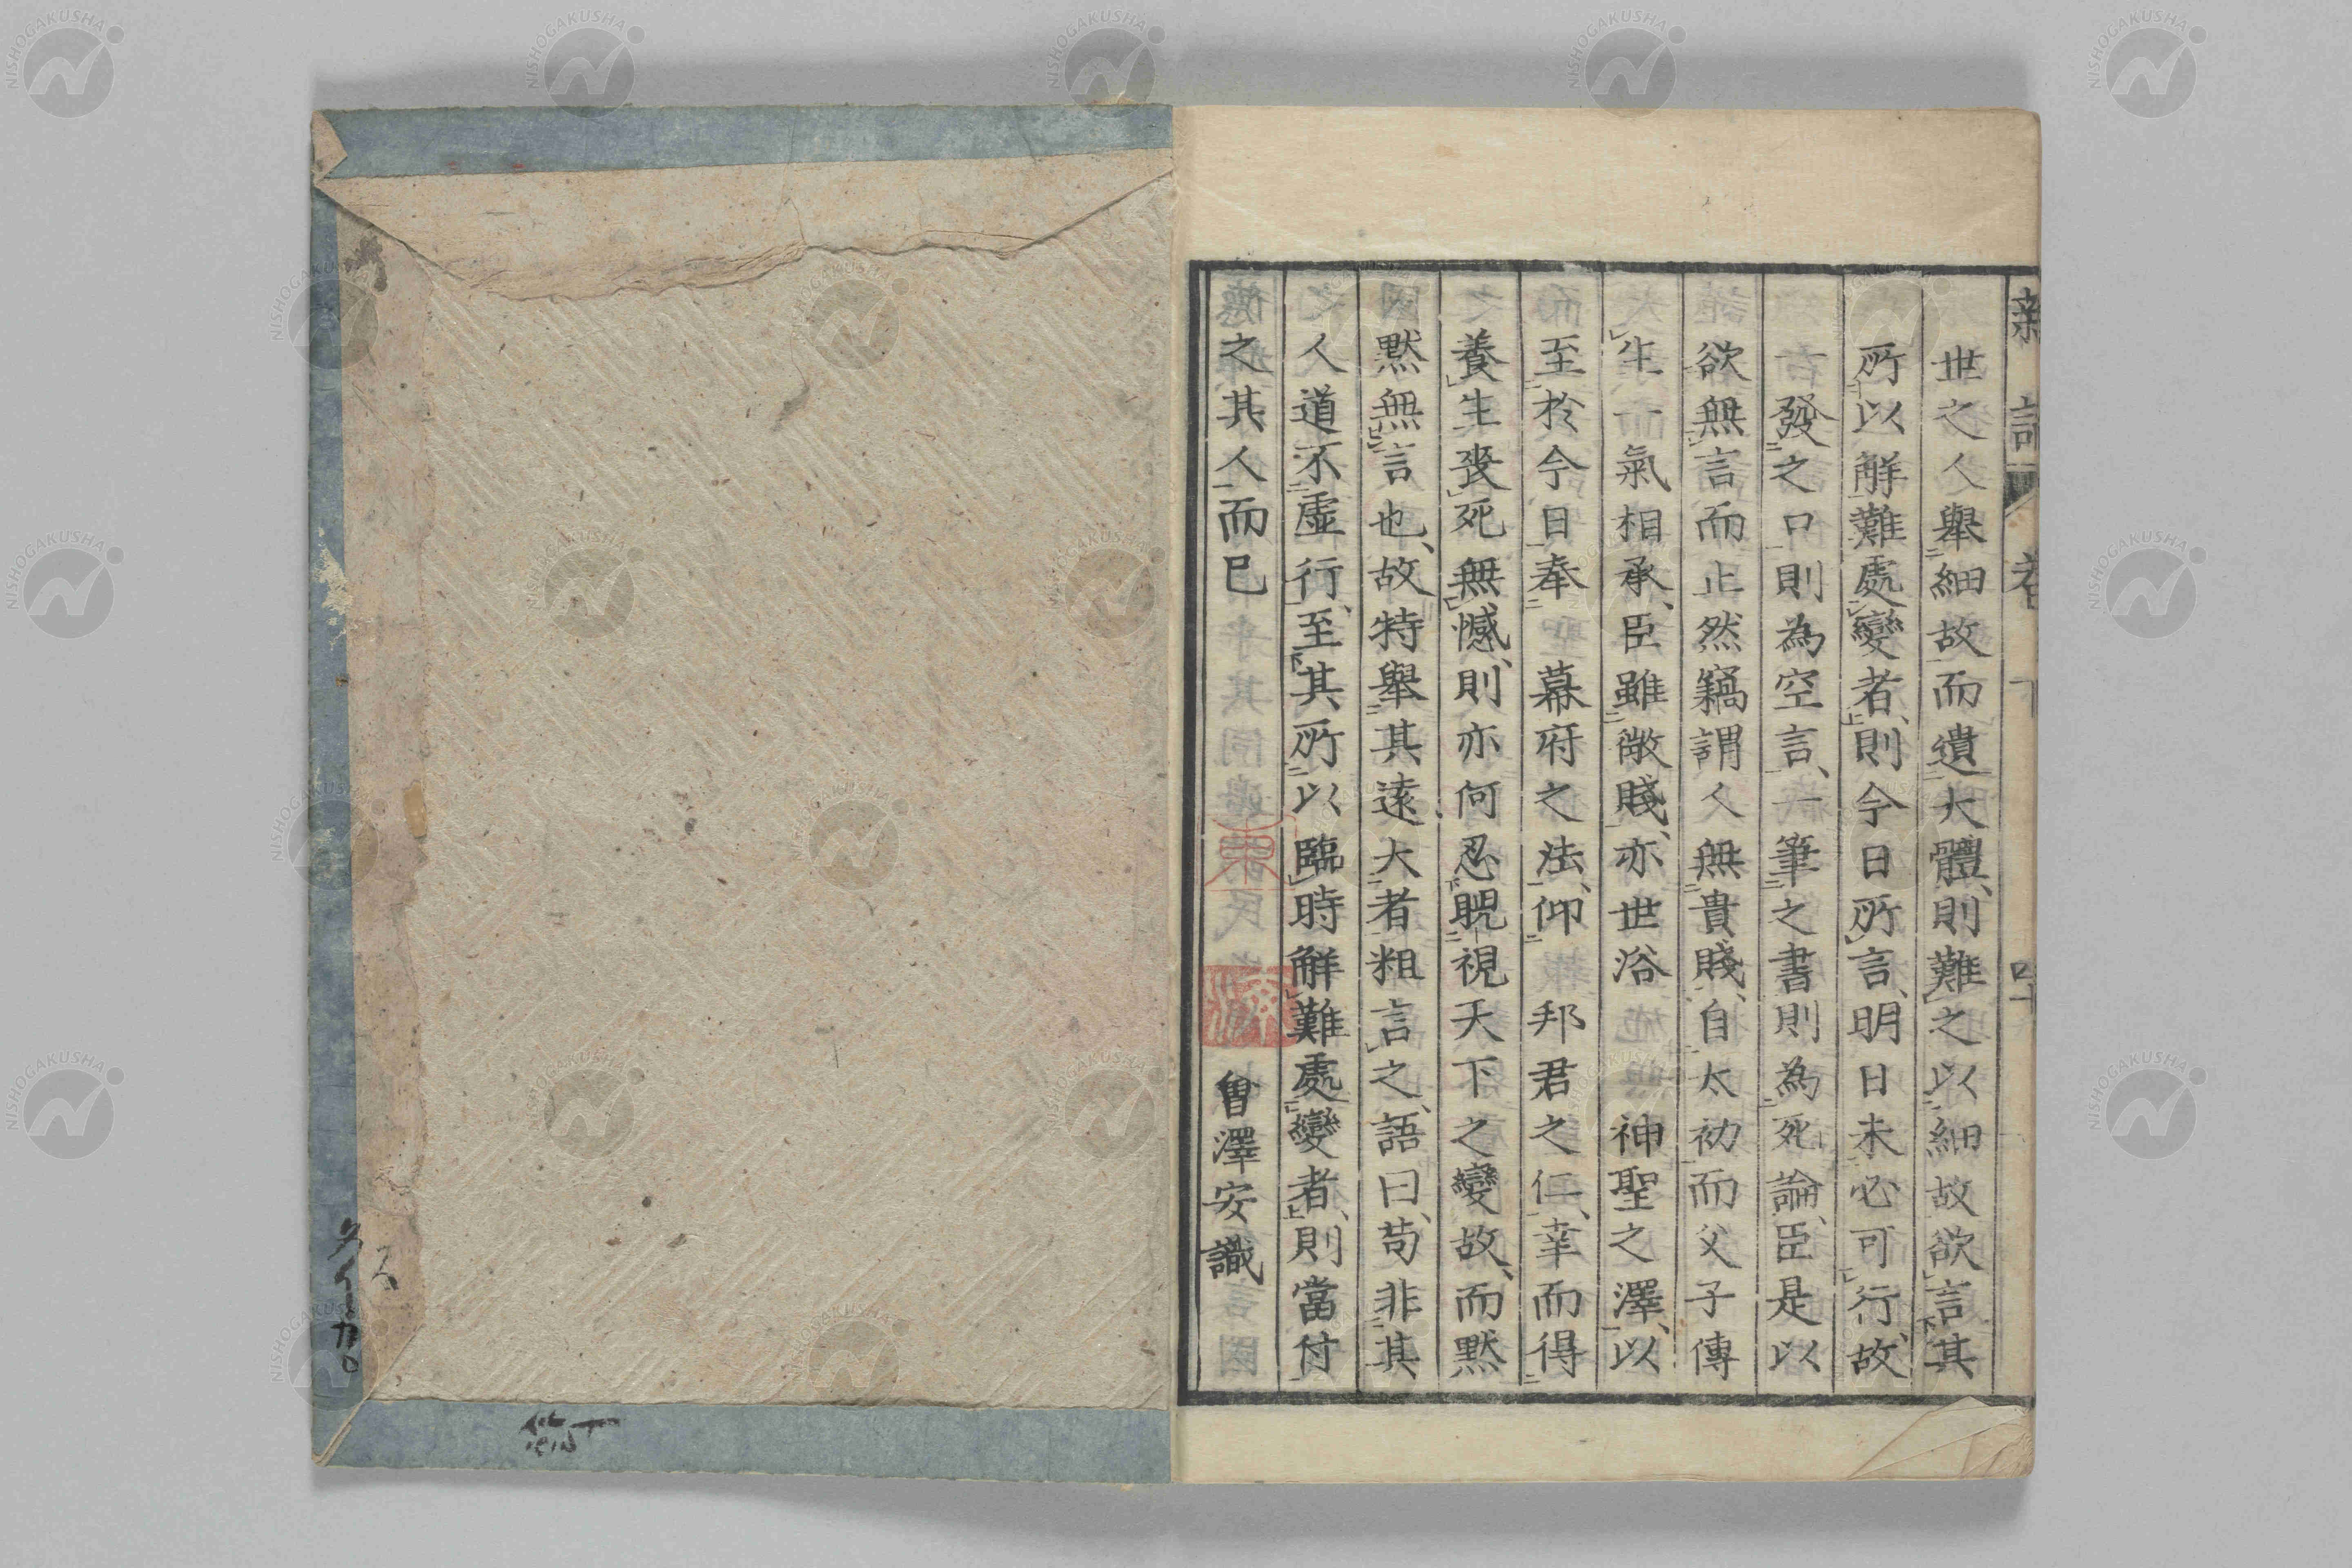 世之人舉細故而遺大體、則難之以細故欲言其
所以解難處變者、則今日所言、明日未必可行、故
發之口則為空言、一筆之書則為死論、臣是以
欲無言而止然竊謂人無貴賤、自太初而父子傳
生一氣相承、臣雖敝賤、亦世浴 神聖之澤、以
至於今日奉 幕府之法、仰 邦君之仁、幸而得
養生喪死無憾、則亦何忍睨視天下之變故、而默
默無言也、故特舉其遠大者粗言之、語曰、苟非其
人道不虛行、至其所以臨時解難處變者、則當付
之其人而已 會澤安識
NISHOGAKUSHA